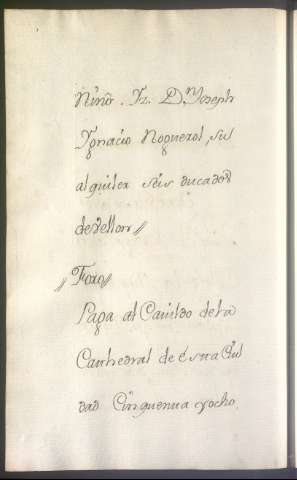 Ygnacio Noguerol, su
alquiler seis ducados
de vellon //
// Foro //
Paga al Cavildo de la
Cathedral de esta Ciu
dad Cinquenta y ocho